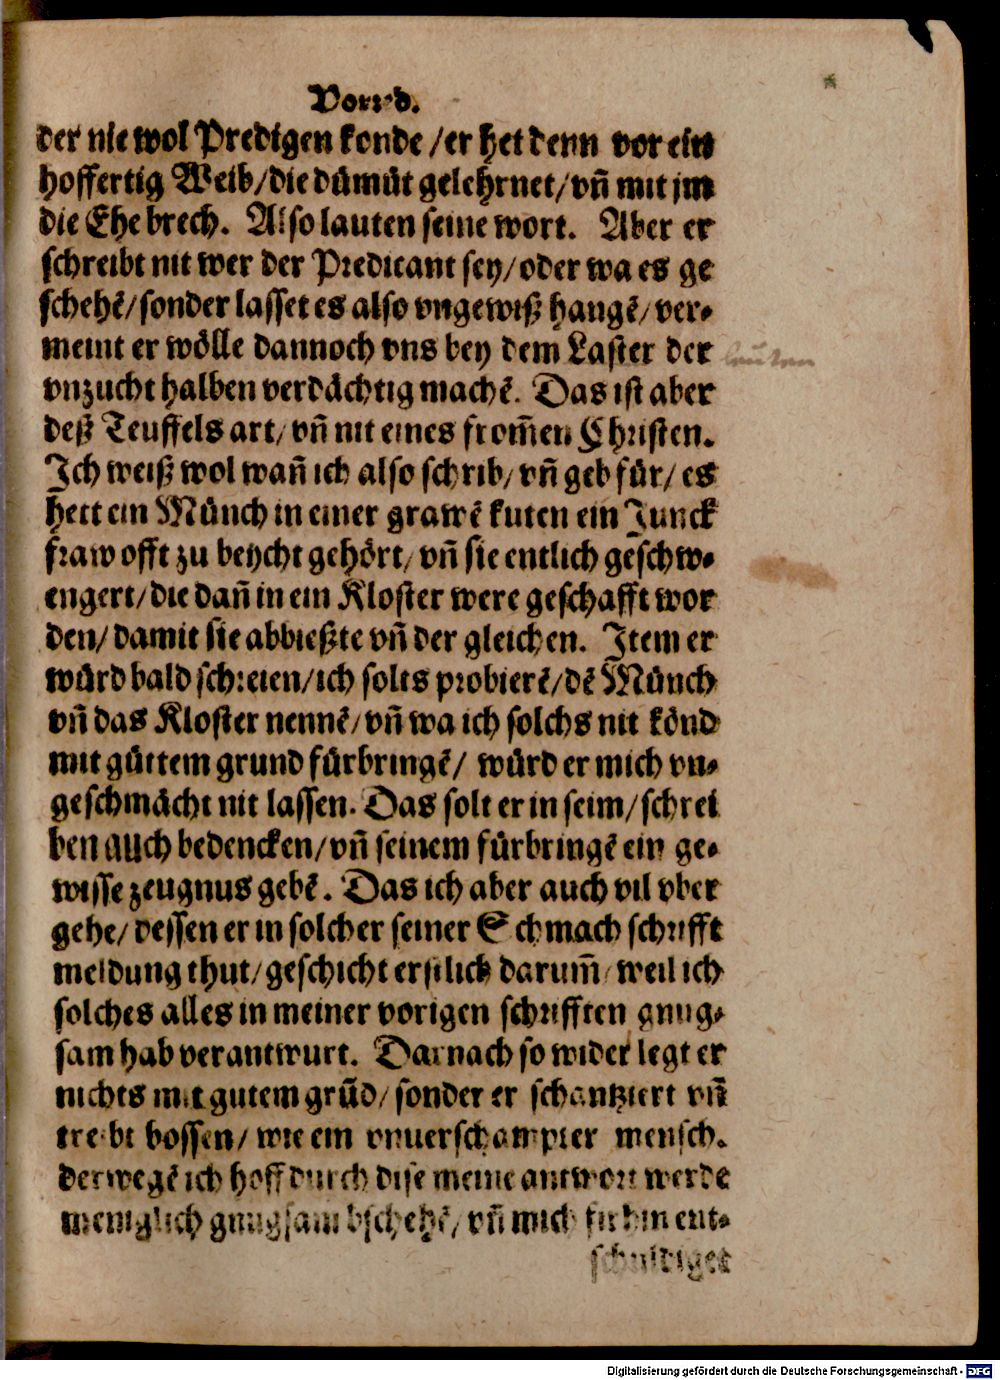 Vorred.
der nie wol Predigen konde / er het denn vor ein
hoffertig Weib / die dümüt gelehrnet / vñ mit jm
die Ehe brech. Also lauten seine wort. Aber er
schreibt nit wer der Predicant sey / oder wa es ge
schehē / sonder lasset es also vngewiß hangē / ver⸗
meint er wölle dannoch vns bey dem Laster der
vnzucht halben verdächtig machē. Das ist aber
deß Teuffels art / vñ nit eines from̃en Christen.
Ich weiß wol wañ ich also schrib / vñ geb für / es
hett ein Münch in einer grawē kuten ein Junck
fraw offt zu beycht gehört / vñ sie entlich geschw⸗
engert / die dañ in ein Kloster were geschafft wor
den / damit sie abbießte vñ der gleichen. Item er
würd bald schreien / ich solts probierē / dē Münch
vñ das Kloster nennē / vñ wa ich solchs nit könd
mit güttem grund fürbringē / würd er mich vn⸗
geschmächt nit lassen. Das solt er in seim / schrei
ben auch bedencken / vñ seinem fürbringē ein ge⸗
wisse zeugnus gebē. Das ich aber auch vil vber
gehe / dessen er in solcher seiner Schmach schrifft
meldung thut / geschicht erstlich darum̃ / weil ich
solches alles in meiner vorigen schrifften gnug⸗
sam hab verantwurt. Darnach so widerlegt er
nichts mit gutem grũd / sonder er schantziert vñ
treibt bossen / wie ein vnuerschampter mensch.
derwegē ich hoff durch dise meine antwort werde
meniglich gnugsam bschehē / vñ mich fürhin ent⸗
schuldiget
Digitalisierung gefördert durch die Deutsche Forschungsgemeinschaft - DFG